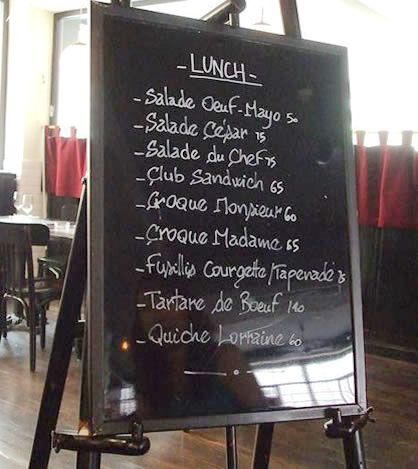 - LUNCH -
- Salade Oeuf-Mayo 50
- Salade César 75
- Salade du Chef 75
- Club Sandwich 65
- Croque Monsieur 60
- Croque Madame 65
- Fusillis Courgette/Tapenade 75
- Tartare de Boeuf 110
- Quiche Lorraine 60